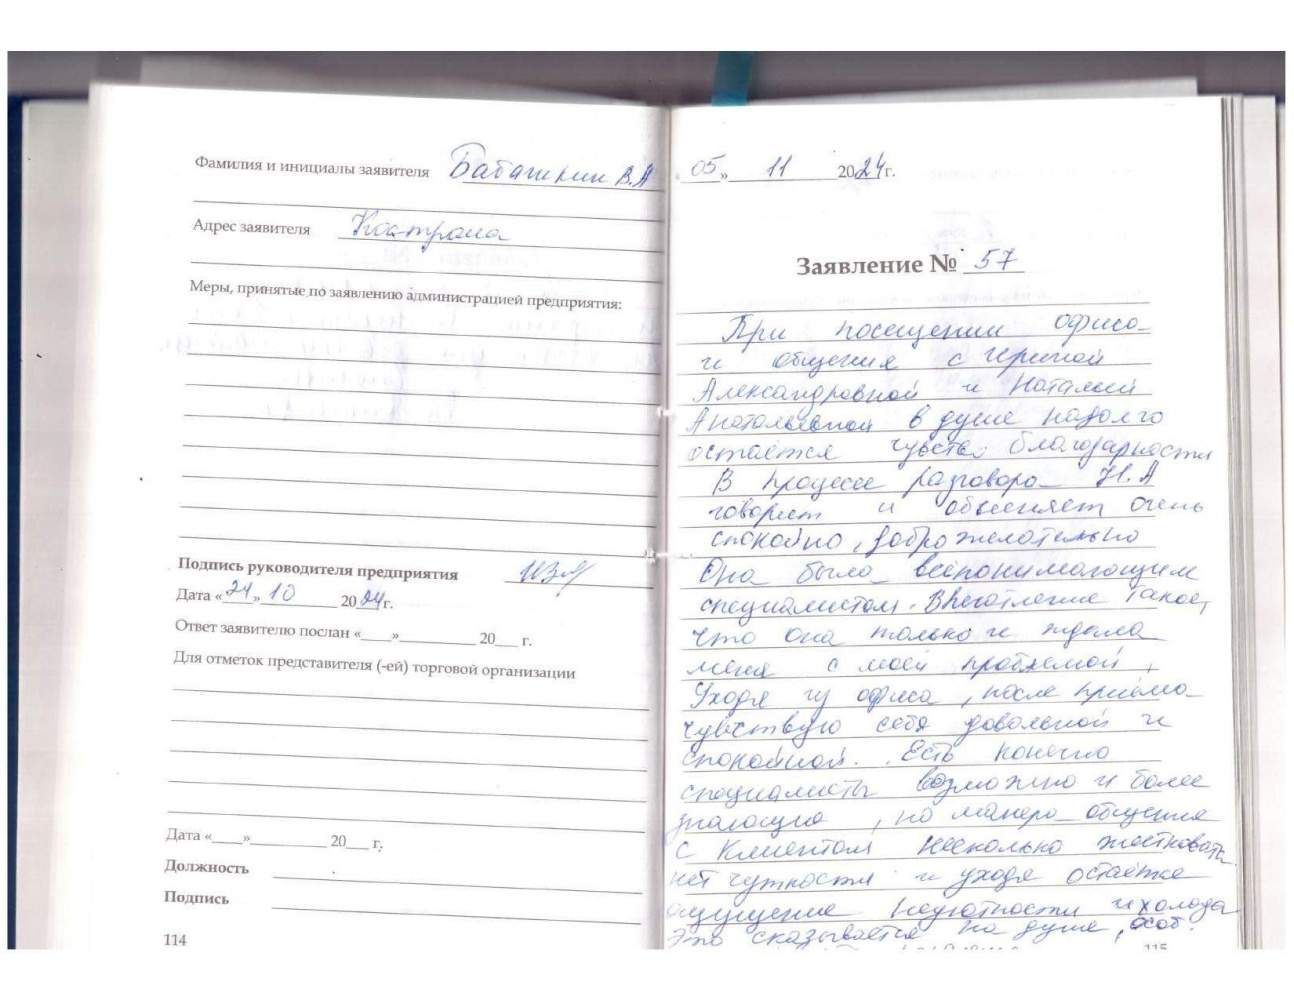 Фамилия и инициалы заявителя Бабашкин В.А
Адрес заявителя Кострома
Меры, принятые по заявлению администрацией предприятия:
Подпись руководителя предприятия
Дата «24» 10 2024г.
Ответ заявителю послан «___»__________ 20___ г.
Для отметок представителя (-ей) торговой организации
Дата «____»__________ 20___ г.
Должность
Подпись
114
«05» 11 2024г.
Заявление № 57
При посещении офиса
и общения с Ириной
Александровной и Наталией
Анатольевной в душе надолго
остаётся чувство благодарности
В процессе разговора Н.А
говорит и объясняет очень
спокойно, доброжелательно
Она была всёпонимающим
специалистом. Впечатление такое,
что она только и ждала
меня с моей проблемой,
Уходя из офиса, после приёма
чувствую себя довольной и
спокойной. Есть конечно
специалисты возможно и более
знающие, но манера общения
с клиентом несколько жестковата
нет чуткости и уходя остаётся
ощущение неуютности и холода
Это сказывается на душе, особ.
115